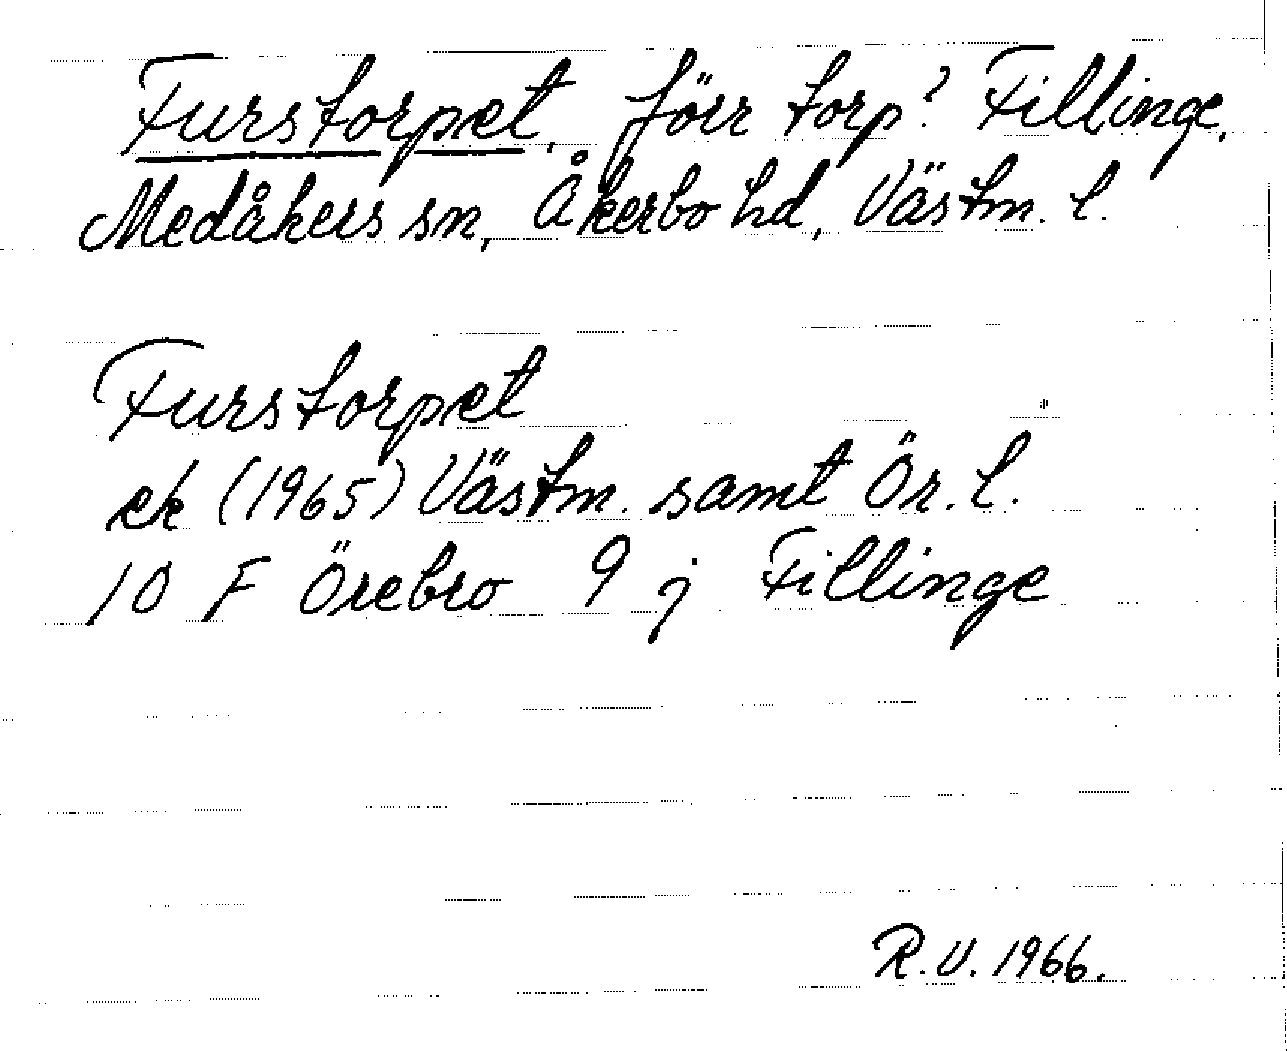 Furstorpet, förr torp? Fillinge,
Medåkers sn, Åkerbo hd, Västm. l.
Furstorpet
ek (1965) Västm. samt Ör. l.
10 F Örebro 9 j Fillinge
R.U. 1966.